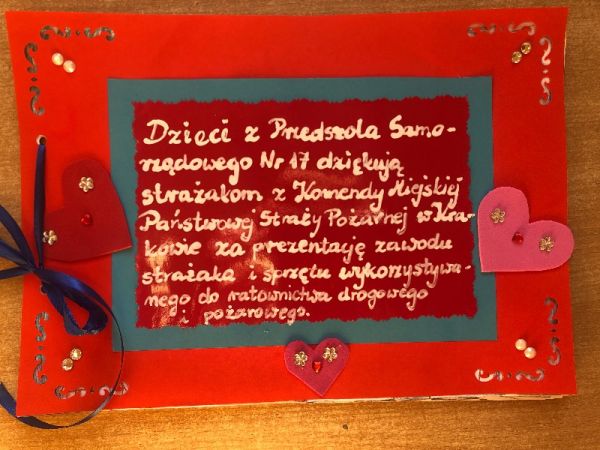 Dzieci z Przedszkola Samo-
rządowego Nr 17 dziękują
strażakom z Komendy Miejskiej
Państwowej Straży Pożarnej w Kra-
kowie za prezentację zawodu
strażaka i sprzętu wykorzystywa-
nego do ratownictwa drogowego
i pożarowego.